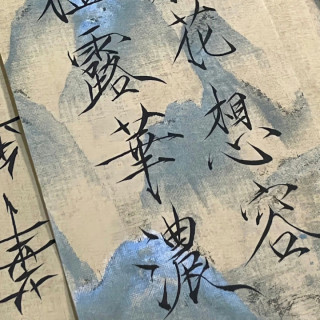 花想容
露華濃